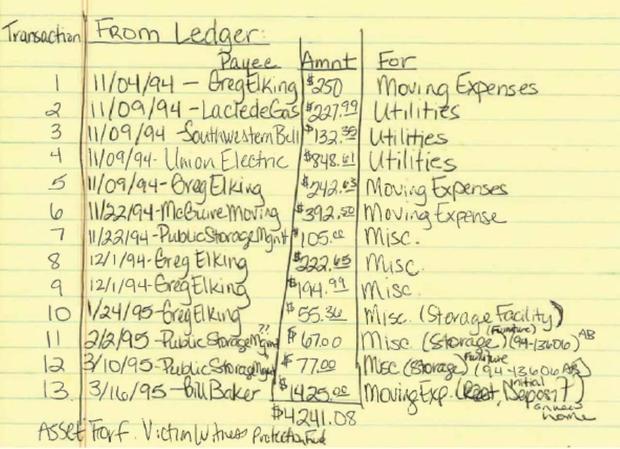 Transaction From Ledger:
Payee Amnt For
1 11/04/94 - Greg Elking $250 Moving Expenses
2 11/09/94 - Laclede Gas $227.99 Utilities
3 11/09/94 - Southwestern Bell $132.35 Utilities
4 11/09/94 - Union Electric $848.61 Utilities
5 11/09/94 - Greg Elking $242.63 Moving Expenses
6 11/22/94 - McGuire Moving $392.50 Moving Expense
7 11/22/94 - Public Storage Mgmt $105.00 Misc.
8 12/1/94 - Greg Elking $222.65 Misc.
9 12/1/94 - Greg Elking $194.99 Misc.
10 1/24/95 - Greg Elking $55.36 Misc. (Storage Facility)
?? (Furniture)
11 2/2/95 - Public Storage Mgmt $67.00 Misc (Storage) (94-13606) AB
Furniture
12 3/10/95 - Public Storage Mgmt $77.00 Misc (Storage) (94-13606 AB)
13. 3/16/95 - Bill Baker $1425.00 Moving Exp. (Rent, Initial Deposit)
on new home
$4241.08
Asset Forf. Victim Witness Protection Fund